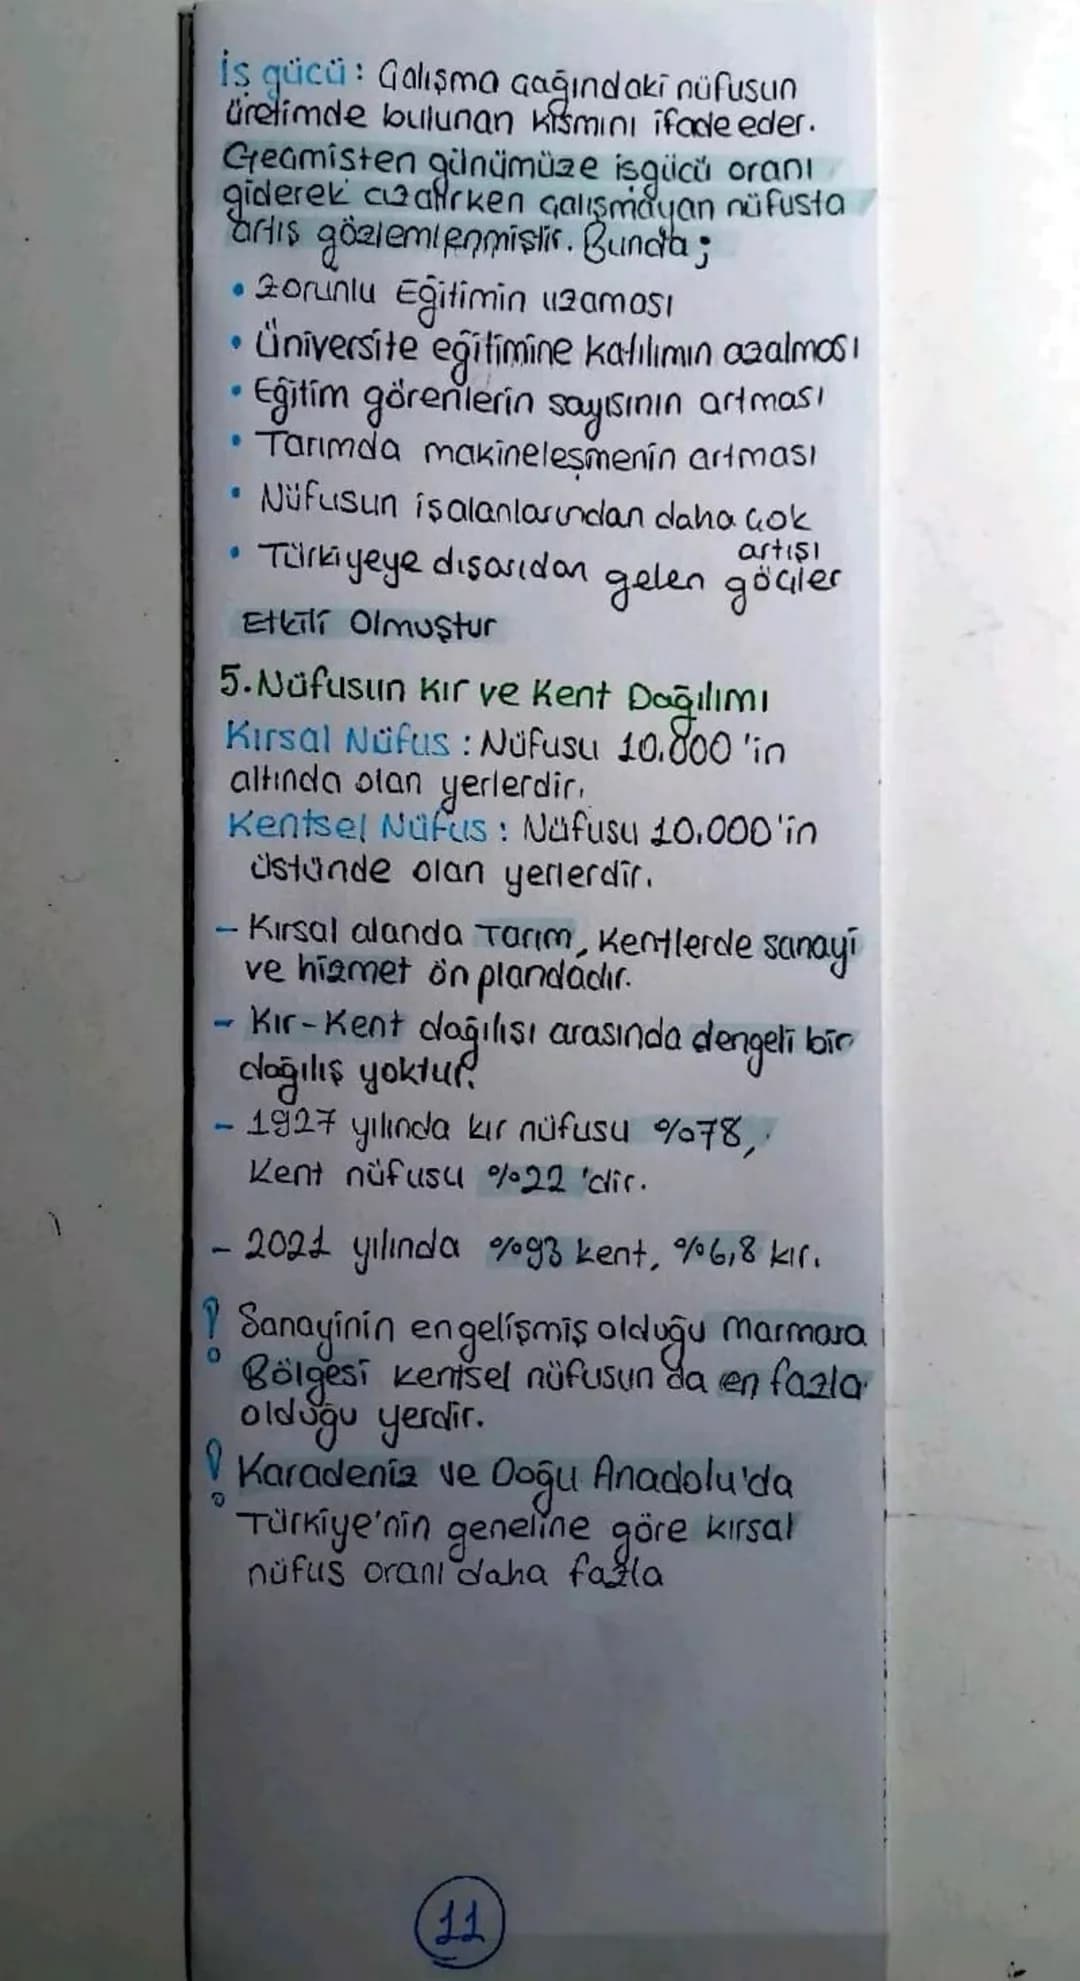 İş gücü: Çalışma çağındaki nüfusun
üretimde bulunan kısmını ifade eder.
Geçmişten günümüze işgücü oranı
giderek azalırken çalışmayan nüfusta
artış gözlemlenmiştir. Bunda;
• Zorunlu Eğitimin uzaması
• Üniversite eğitimine katılımın azalması
• Eğitim görenlerin sayısının artması
• Tarımda makineleşmenin artması
• Nüfusun iş alanlarından daha çok
artışı
• Türkiyeye dışarıdan gelen göçler
Etkili Olmuştur
5. Nüfusun Kır ve Kent Dağılımı
Kırsal Nüfus: Nüfusu 10.000'in
altında olan yerlerdir.
Kentsel Nüfus: Nüfusu 10.000'in
üstünde olan yerlerdir.
- Kırsal alanda Tarım, Kentlerde sanayi
ve hizmet ön plandadır.
- Kır-Kent dağılışı arasında dengeli bir
dağılış yoktur.
- 1927 yılında kır nüfusu %78,
Kent nüfusu %22'dir.
- 2021 yılında %93 kent, %6,8 kır.
! Sanayinin en gelişmiş olduğu Marmara
Bölgesi kentsel nüfusun da en fazla
olduğu yerdir.
! Karadeniz ve Doğu Anadolu'da
Türkiye'nin geneline göre kırsal
nüfus oranı daha fazla
11